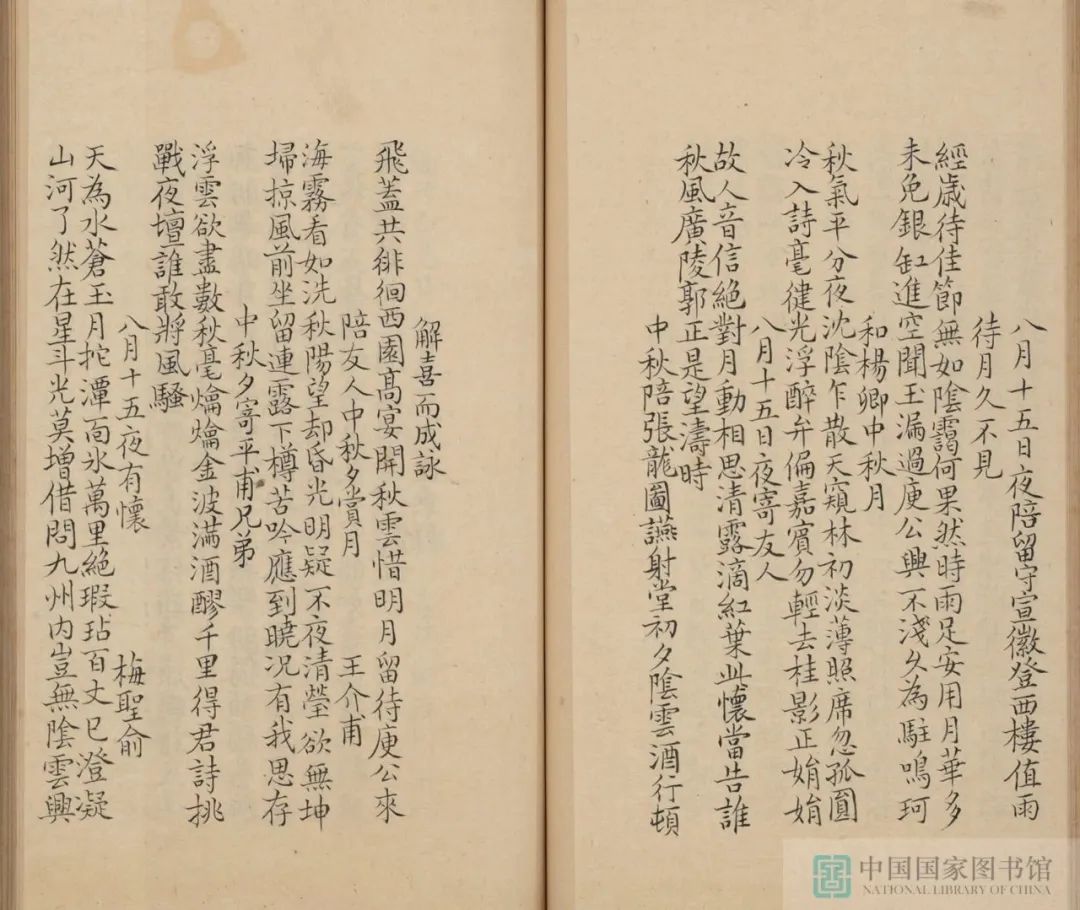 八月十五日夜陪留守宣徽登西樓值雨
待月久不見
經歲待佳節無如陰靄何果然時雨足安用月華多
未免銀缸進空聞玉漏過庾公興不淺久為駐鳴珂
和楊卿中秋月
秋氣平分夜沈陰乍散天窺林初淡薄照席忽孤圓
冷入詩毫健光浮醉弁偏嘉賓勿輕去桂影正娟娟
八月十五日夜寄友人
故人音信絕對月動相思清露滴紅葉此懷當告誰
秋風廣陵郭正是望濤時
中秋陪張龍圖讌射堂初夕陰雲酒行頓
解喜而成詠
飛蓋共徘徊西園高宴開秋雲惜明月留待庾公來
陪友人中秋夕賞月 王介甫
海霧看如洗秋陽望却昏光明疑不夜清瑩欲無坤
埽掠風前坐留連露下樽苦吟應到曉況有我思存
中秋夕寄平甫兄弟
浮雲欲盡數秋毫爚爚金波滿酒醪千里得君詩挑
戰夜壇誰敢將風騷
八月十五夜有懷 梅聖俞
天為水蒼玉月挖潭面氷萬里絕瑕玷百丈已澄凝
山河了然在星斗光莫增借問九州內豈無陰雲興
中国国家图书馆
NATIONAL LIBRARY OF CHINA